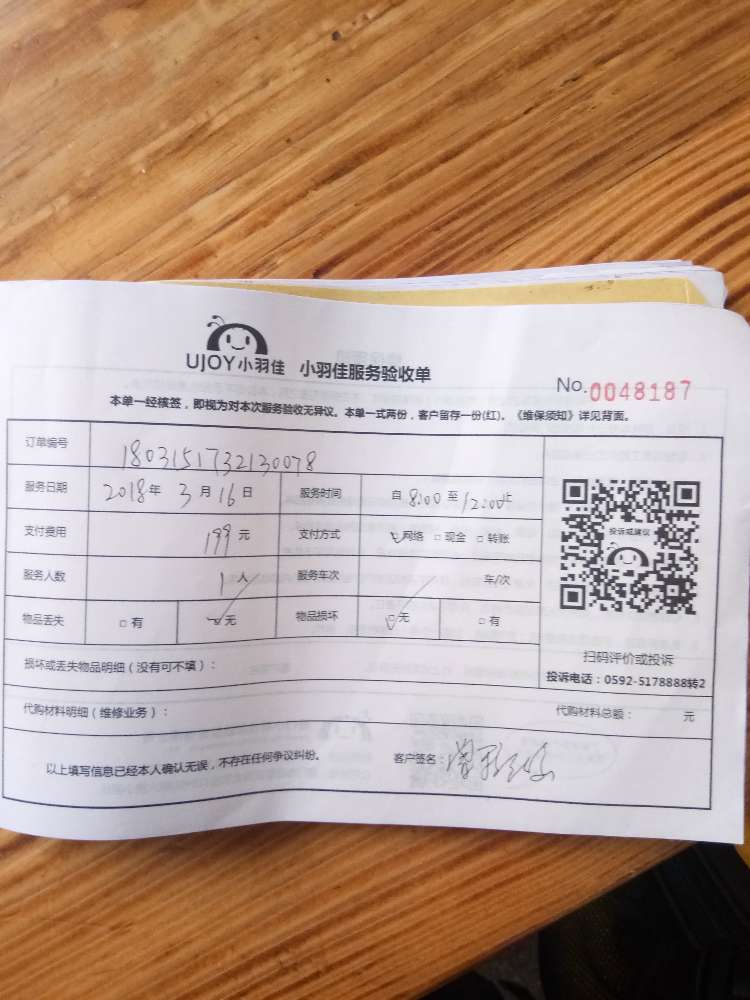 UJOY小羽佳 小羽佳服务验收单
No. 0048187
本单一经核签，即视为对本次服务验收无异议。本单一式两份，客户留存一份(红)。《维保须知》详见背面。
订单编号 1803151732130078
服务日期 2018年 3月16日 服务时间 自 8:00 至 12:00止
支付费用 199元 支付方式 网络 □现金 □转账
服务人数 1人 服务车次 车/次
物品丢失 □有 无 物品损坏 无 □有
投诉或建议
扫码评价或投诉
投诉电话：0592-5178888转2
损坏或丢失物品明细（没有可不填）：
代购材料明细（维修业务）： 代购材料总额： 元
以上填写信息已经本人确认无误，不存在任何争议纠纷。 客户签名：